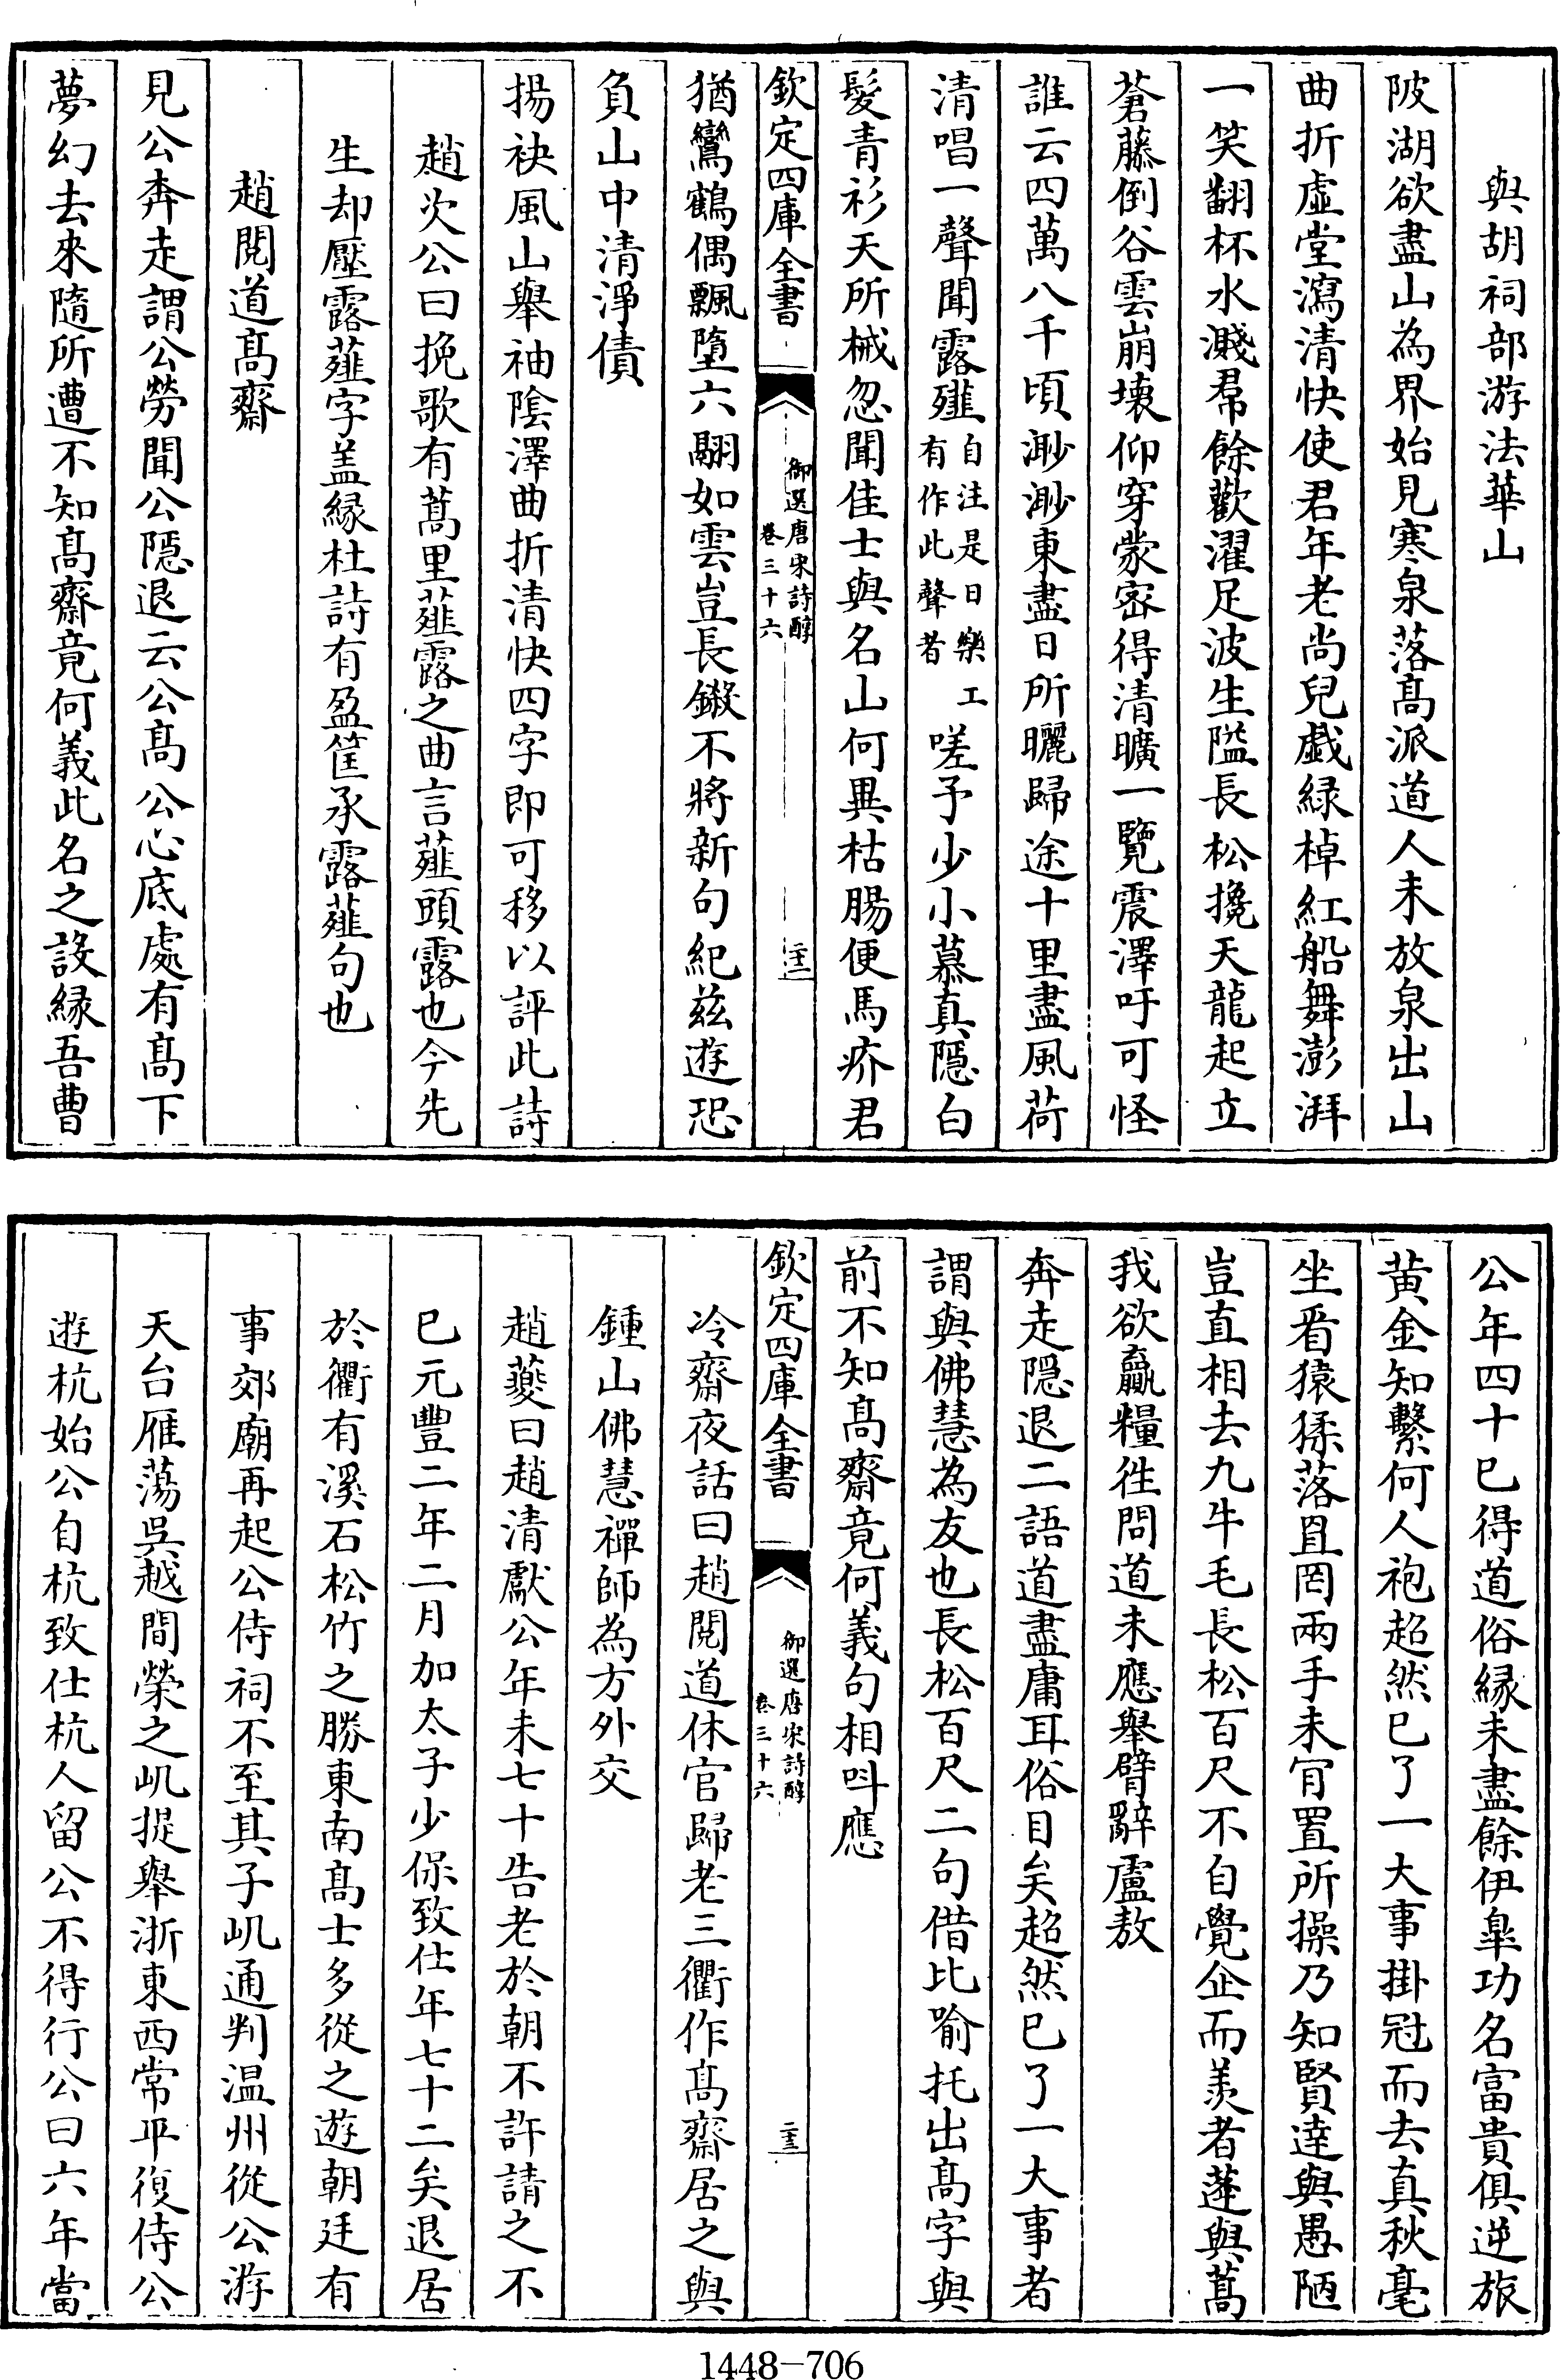 與胡祠部游法華山
陂湖欲盡山為界始見寒泉落髙派道人未放泉出山
曲折虛堂瀉清快使君年老尚兒戯緑棹紅船舞澎湃
一笑翻杯水濺帬餘歡濯足波生隘長松攙天龍起立
蒼藤倒谷雲崩壊仰穿蒙宻得清曠一覽震澤吁可怪
誰云四萬八千頃渺渺東盡日所曬歸途十里盡風荷
清唱一聲聞露薤自注是日樂工有作此聲者嗟予少小慕真隠白
髮青衫天所械忽聞佳士與名山何異枯腸便馬疥君
欽定四庫全書
御選唐宋詩醇
卷三十六
二十二
猶鸞鶴偶飄墮六翮如雲豈長鎩不將新句紀兹遊恐
負山中清淨債
揚袂風山舉袖陰澤曲折清快四字即可移以評此詩
趙次公曰挽歌有蒿里薤露之曲言薤頭露也今先
生却壓露薤字盖縁杜詩有盈筐承露薤句也
趙閱道髙齋
見公奔走謂公勞聞公隠退云公髙公心底處有髙下
夢幻去來隨所遭不知髙齋竟何義此名之設縁吾曹
公年四十已得道俗縁未盡餘伊臯功名富貴俱逆旅
黄金知繫何人袍超然已了一大事掛冠而去真秋毫
坐看猿猱落罝罔兩手未肎置所操乃知賢達與愚陋
豈直相去九牛毛長松百尺不自覺企而羡者蓬與蒿
我欲贏糧徃問道未應舉臂辭盧敖
奔走隠退二語道盡庸耳俗目矣超然已了一大事者
謂與佛慧為友也長松百尺二句借比喻托出髙字與
前不知髙齋竟何義句相呌應
欽定四庫全書
御選唐宋詩醇
卷三十六
二十三
冷齋夜話曰趙閱道休官歸老三衢作髙齋居之與
鍾山佛慧禪師為方外交
趙夔曰趙清獻公年未七十告老於朝不許請之不
已元豐二年二月加太子少保致仕年七十二矣退居
於衢有溪石松竹之勝東南髙士多從之遊朝廷有
事郊廟再起公侍祠不至其子屼通判温州從公游
天台雁蕩吳越間榮之屼提舉浙東西常平復侍公
遊杭始公自杭致仕杭人留公不得行公曰六年當
1448-706